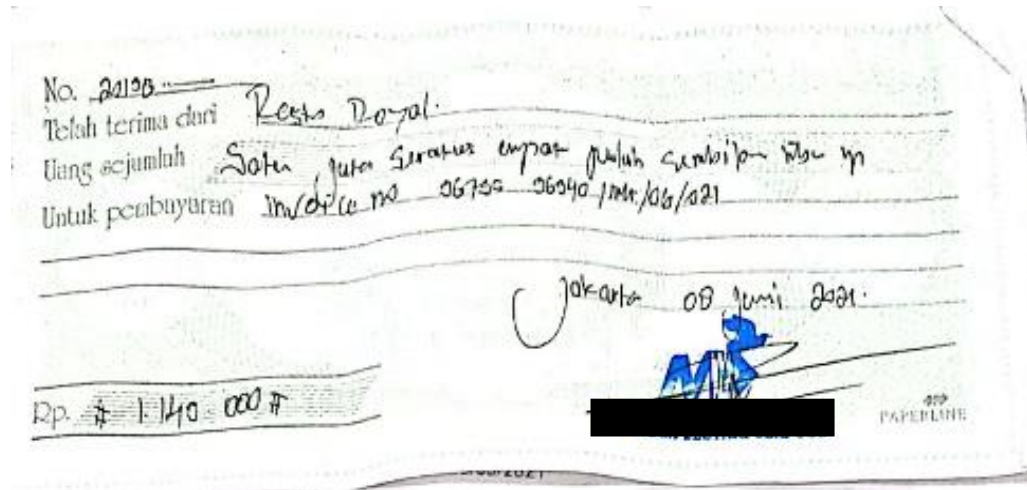 No. 20190
Telah terima dari Resto Royal.
Uang sejumlah Satu juta Seratus empat puluh sembilan ribu rp
Untuk pembayaran invoice no 06940/MS/06/021
Jakarta 08 Juni 2021.
Rp. # 1.140 000 #
PAPERLINE